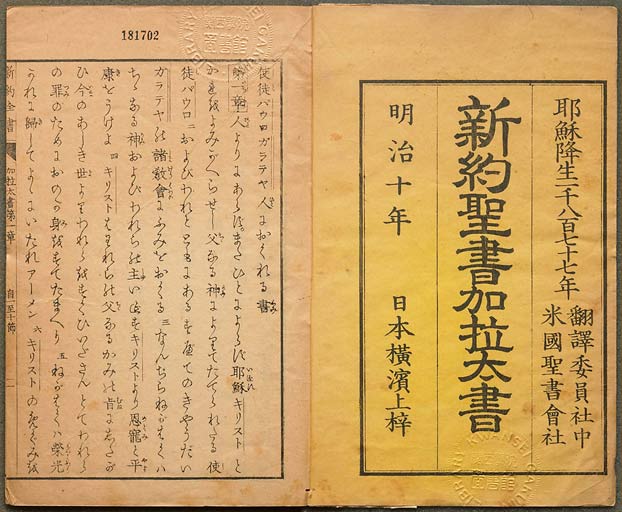 耶穌降生一千八百七十七年
翻譯委員社中
米國聖書會社
新約聖書加拉太書
明治十年 日本橫濱上梓
181702
使徒パウロガラテヤ人におくれる書
第一章人よりにあらずまたひとによらず耶穌キリストと
かれをよみがへらせし父なる神によりてたてられたる使
徒パウロ二およびわれとともにあるすべてのきやうだい
ガラテヤの諸敎會にふみをおくる三なんぢらねがはくハ
ちゝなる神およびわれらの主キリストより恩寵と平
康をうけよ四キリストはわれらの父なるかみの旨にしたが
ひ今のあしき世よりわれらをすくひいださんとてわれら
の罪のためにおのが身をすてたまへり五ねがはくハ榮光
かれに歸してよゝにいたれアーメン六キリストのめぐみを
新約全書 加拉太書第一章 自一至十節 一